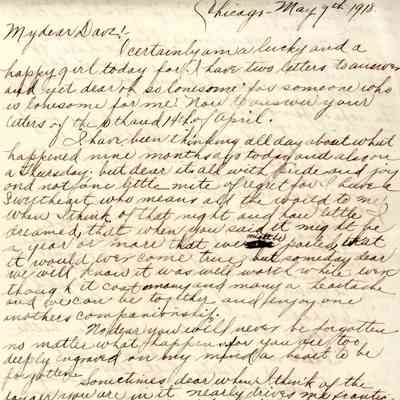 Chicago - May 9th 1918.
My dear Dave:-
I certainly am a lucky and a
happy girl today for I have two letters to answer
and yet dear oh so lonesome for someone who
is lonesome for me! Now to answer your
letters of the 10th and 14th of April.
I have been thinking all day about what
happened nine months ago today and also on
a Thursday; but dear its all with pride and joy
and not one little mite of regret for I have a
Sweetheart who means all the world to me!
When I think of that night and how little I
dreamed, that when you said it might be
a year or more that we parted, that
it would ever come true; but someday dear
we will know it was well worth while even
though it cost many and many a heartache
and we can be together and enjoy one
anothers companionship.
No, dear you will never be forgotten
no matter what happens for you are too
deeply engraved on my mind & heart to be
forgotten.
Sometimes dear when I think of the
danger you are in it nearly drives me frantic